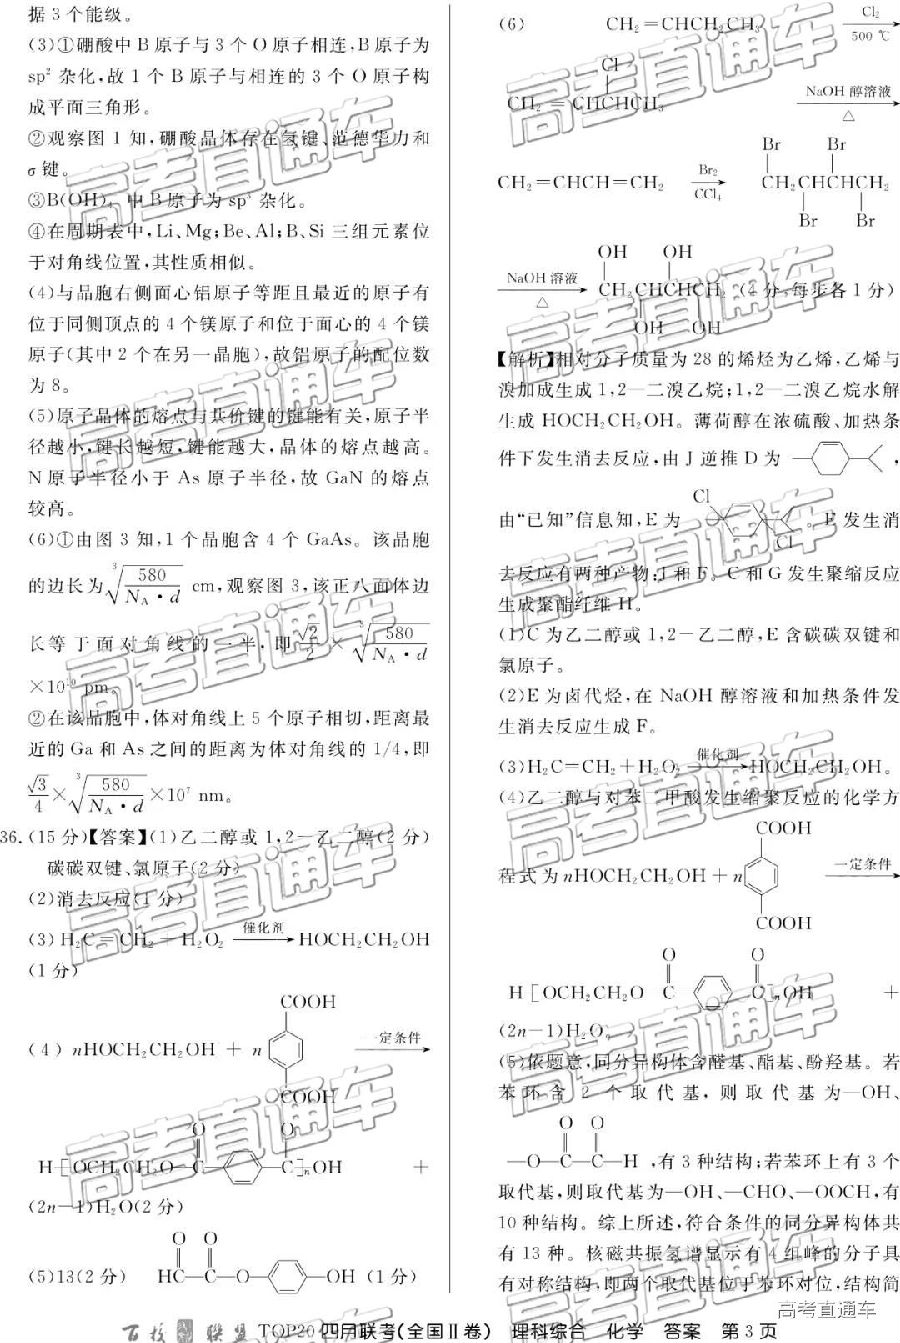 据3个能级。
(3)①硼酸中B原子与3个O原子相连,B原子为
sp²杂化,故1个B原子与相连的3个O原子构
成平面三角形。
②观察图1知,硼酸晶体存在氢键、范德华力和
σ键。
③B(OH)₄⁻中B原子为sp³杂化。
④在周期表中,Li、Mg;Be、Al;B、Si三组元素位
于对角线位置,其性质相似。
(4)与晶胞右侧面心铝原子等距且最近的原子有
位于同侧顶点的4个镁原子和位于面心的4个镁
原子(其中2个在另一晶胞),故铝原子的配位数
为8。
(5)原子晶体的熔点与共价键的键能有关,原子半
径越小,键长越短,键能越大,晶体的熔点越高。
N原子半径小于As原子半径,故GaN的熔点
较高。
(6)①由图3知,1个晶胞含4个GaAs。该晶胞
的边长为³√(580/(N_A·d)) cm,观察图3,该正八面体边
长等于面对角线的一半,即√2/2×³√(580/(N_A·d))
×10¹⁰ pm。
②在该晶胞中,体对角线上5个原子相切,距离最
近的Ga和As之间的距离为体对角线的1/4,即
√3/4×³√(580/(N_A·d))×10⁷ nm。
36.(15分)【答案】(1)乙二醇或1,2-乙二醇(2分)
碳碳双键、氯原子(2分)
(2)消去反应(1分)
(3)H₂C=CH₂+H₂O₂ 催化剂→ HOCH₂CH₂OH
(1分)
COOH
(4) nHOCH₂CH₂OH + n 一定条件→
COOH
O O
H[OCH₂CH₂O—C— —C]ₙOH +
(2n-1)H₂O(2分)
O O
(5)13(2分) HC—C—O— —OH (1分)
(6) CH₂=CHCH₂CH₃ Cl₂ 500 ℃
Cl
CH₂=CHCHCH₃ NaOH醇溶液 △
Br Br
CH₂=CHCH=CH₂ Br₂ CCl₄→ CH₂CHCHCH₂
Br Br
OH OH
NaOH溶液 △→ CH₂CHCHCH₂(4分,每步各1分)
OH OH
【解析】相对分子质量为28的烯烃为乙烯,乙烯与
溴加成生成1,2—二溴乙烷;1,2—二溴乙烷水解
生成HOCH₂CH₂OH。薄荷醇在浓硫酸、加热条
件下发生消去反应,由J逆推D为 ,
Cl
由“已知”信息知,E为 。E发生消
Cl
去反应有两种产物:J和F。C和G发生聚缩反应
生成聚酯纤维H。
(1)C为乙二醇或1,2-乙二醇,E含碳碳双键和
氯原子。
(2)E为卤代烃,在NaOH醇溶液和加热条件发
生消去反应生成F。
(3)H₂C=CH₂+H₂O₂ 催化剂→HOCH₂CH₂OH。
(4)乙二醇与对苯二甲酸发生缩聚反应的化学方
COOH
程式为nHOCH₂CH₂OH+n 一定条件→
COOH
O O
H[OCH₂CH₂O C C]ₙOH +
(2n-1)H₂O。
(5)依题意,同分异构体含醛基、酯基、酚羟基。若
苯环含2个取代基,则取代基为—OH、
O O
—O—C—C—H,有3种结构;若苯环上有3个
取代基,则取代基为—OH、—CHO、—OOCH,有
10种结构。综上所述,符合条件的同分异构体共
有13种。核磁共振氢谱显示有4组峰的分子具
有对称结构,即两个取代基位于苯环对位,结构简
百校联盟 TOP20 四月联考(全国Ⅱ卷) 理科综合 化学 答案 第3页
高考直通车